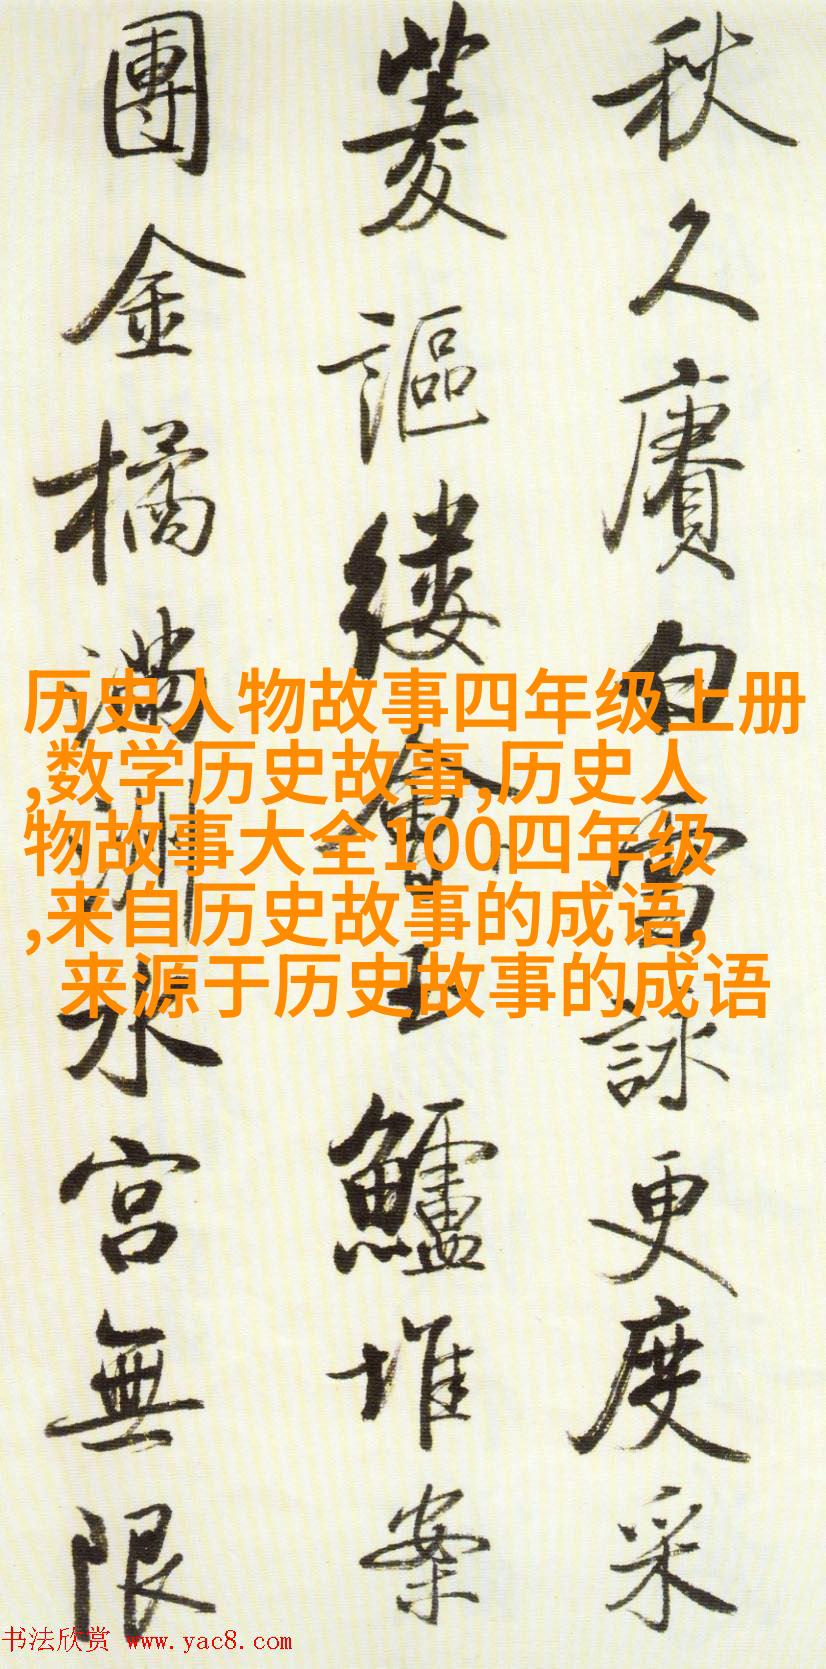 秋久賡白雪詠更度采
菱謳縷會玉鱸堆案
團金橘滿洲水宮無限
历史人物故事四年级上册
,数学历史故事,历史人
物故事大全100四年级
,来自历史故事的成语,
来源于历史故事的成语
书法欣赏 www.yac8.com